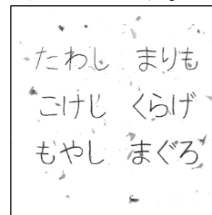 たわし まりも
こけし くらげ
もやし まぐろ